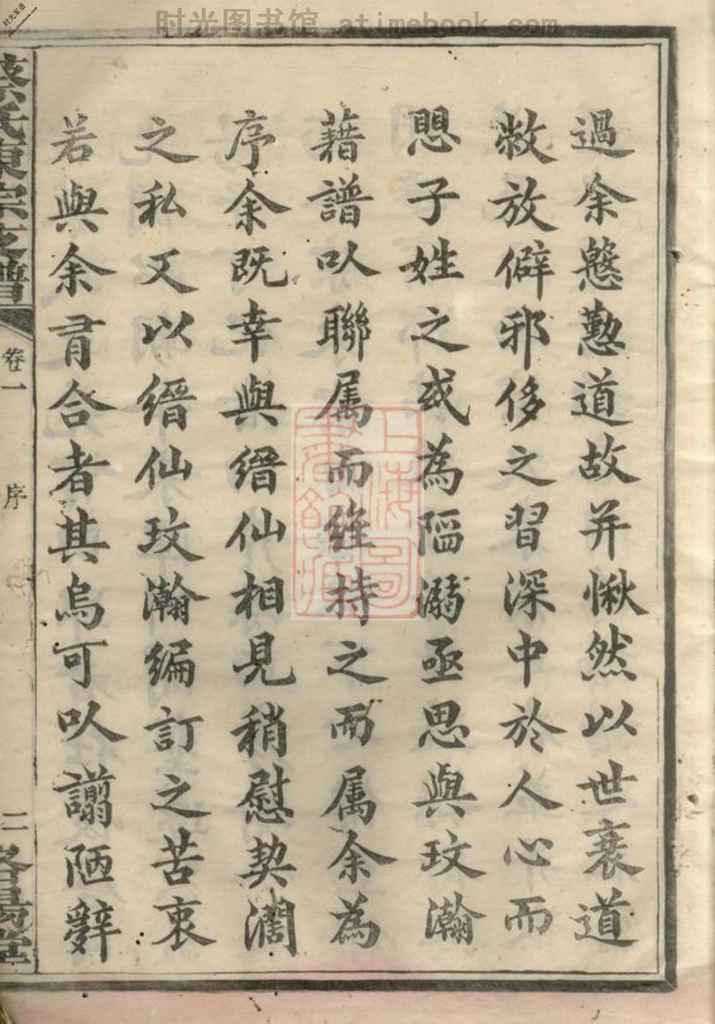 时光图书馆 www.atimebook.com
過余慇懃道故并愀然以世衰道
敝放僻邪侈之習深中於人心而
愳子姓之或為陷溺亟思與玟瀚
藉譜以聯属而維持之而属余為
序余既幸與縉仙相見稍慰契濶
之私又以縉仙玟瀚編訂之苦衷
若與余有合者其烏可以謭陋辭
蔡氏東宗支譜
卷一
序
二